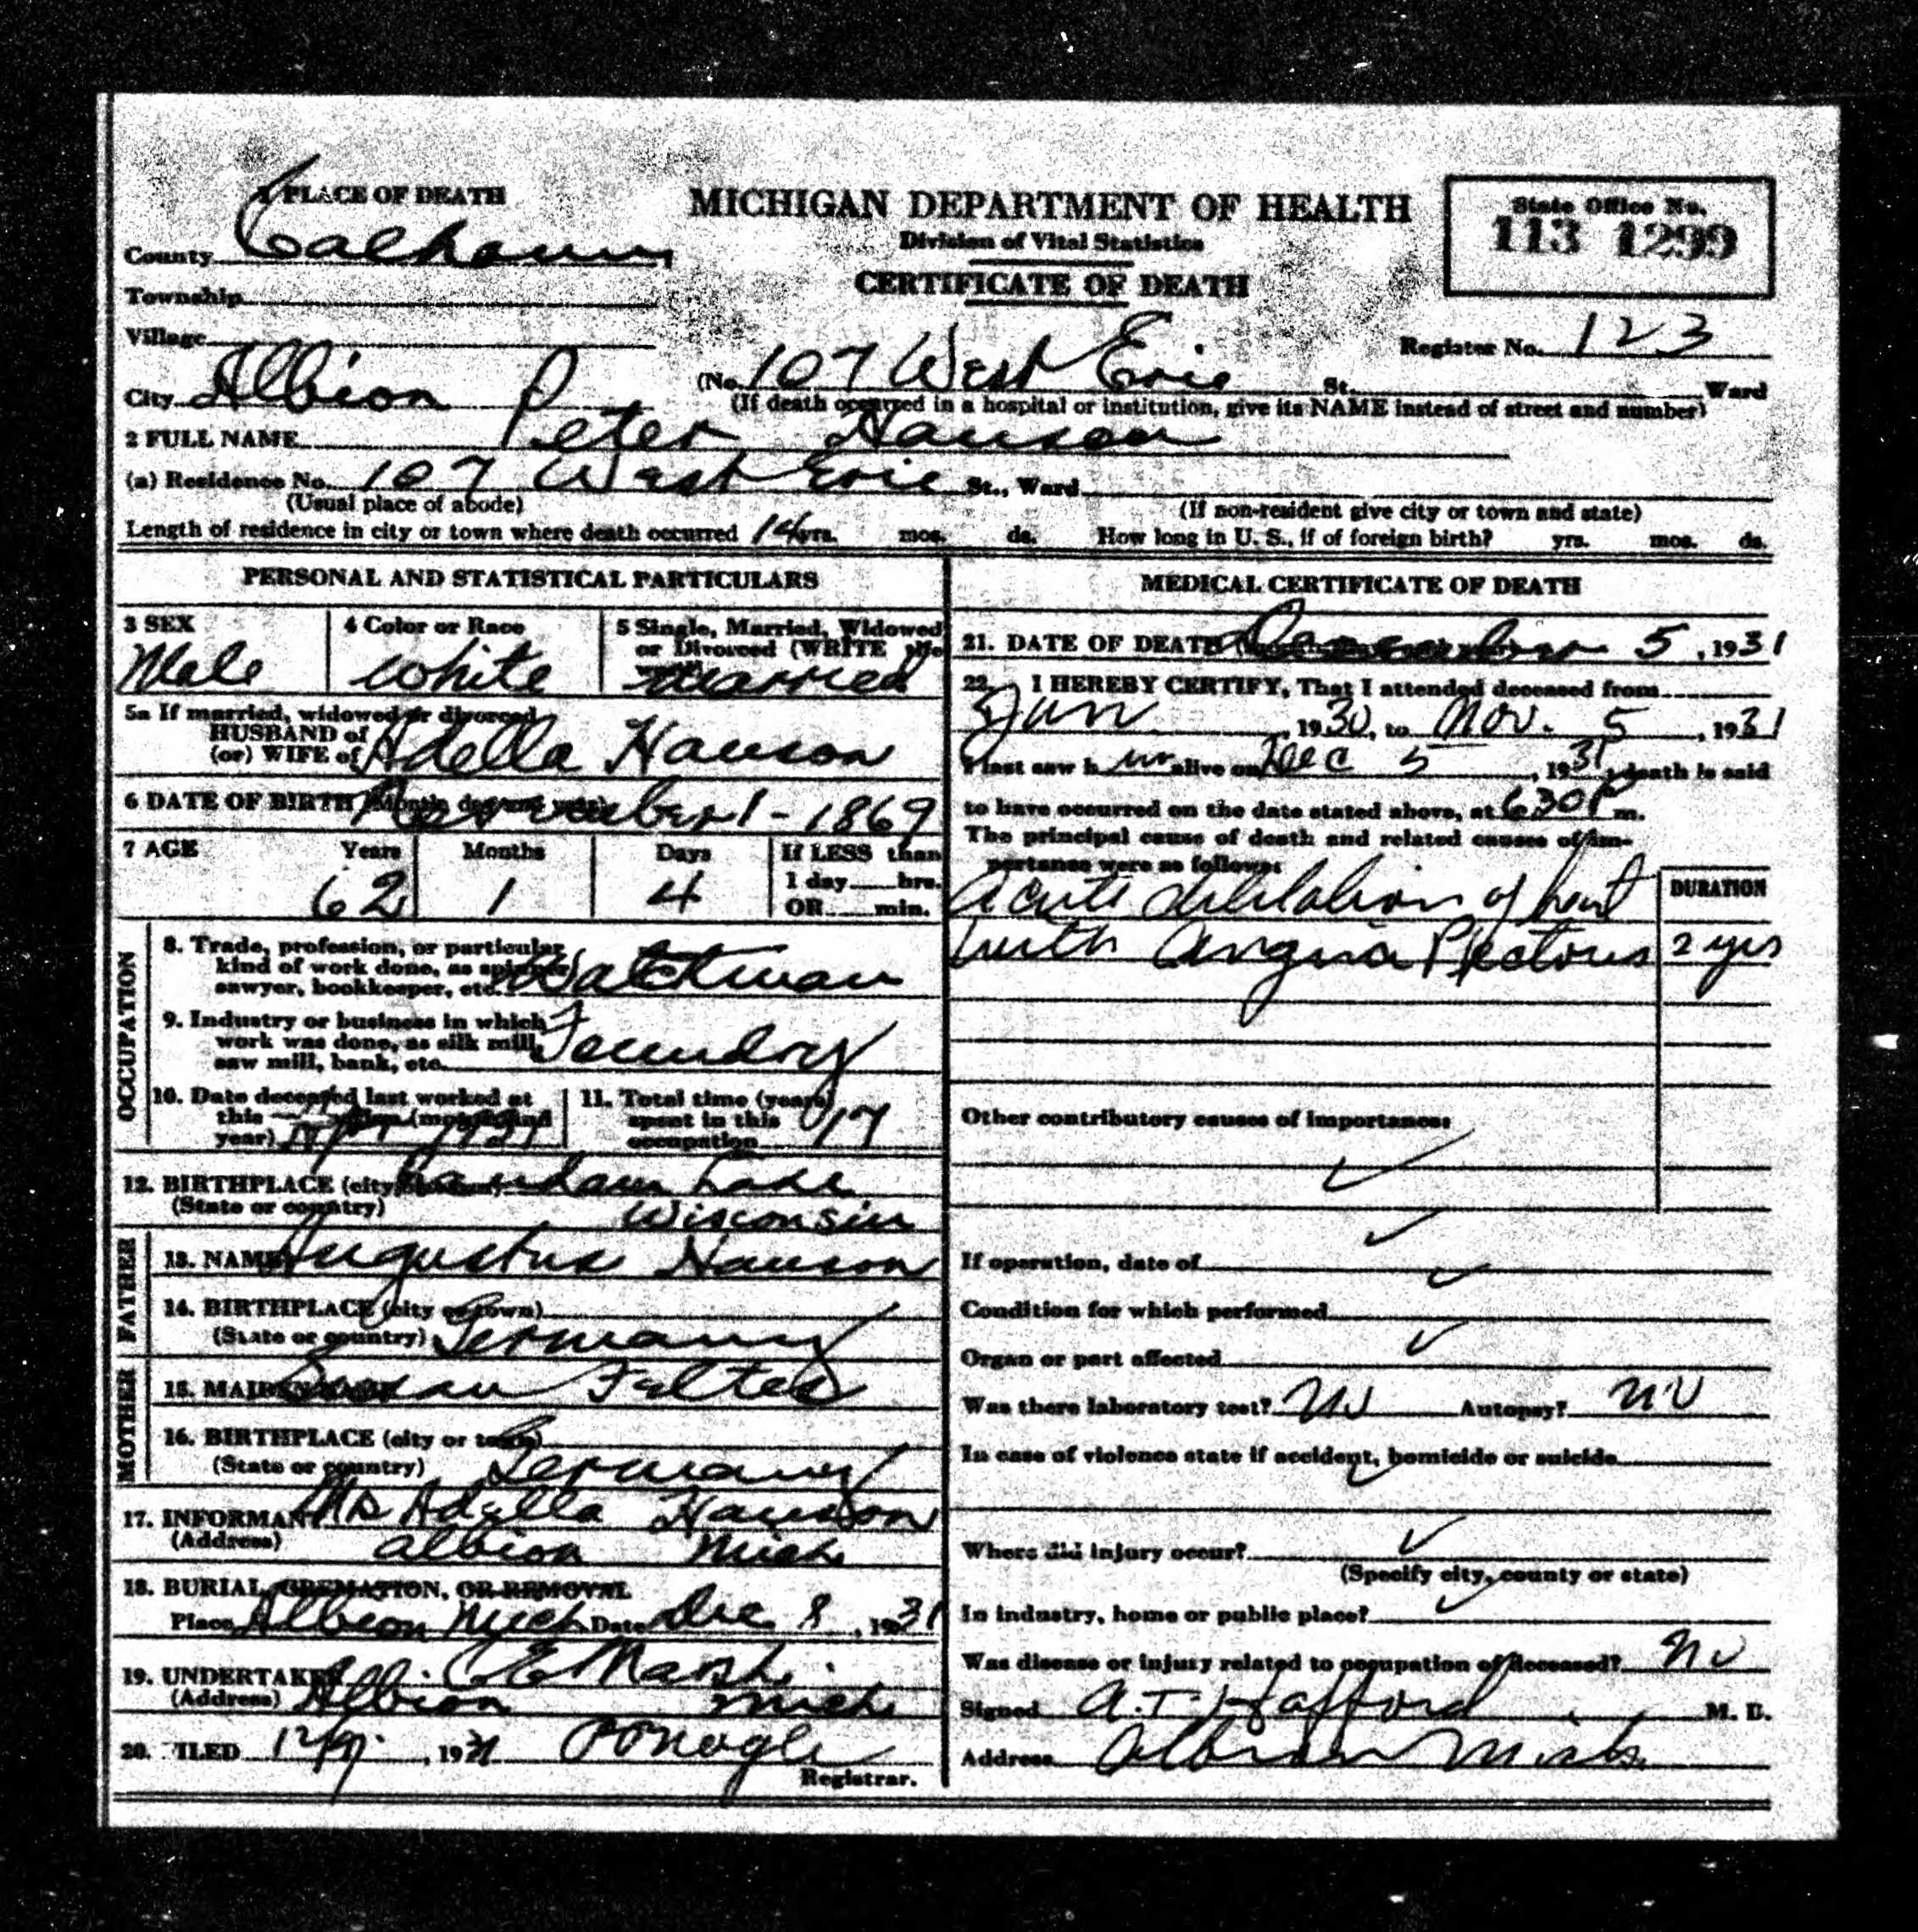 1 PLACE OF DEATH
MICHIGAN DEPARTMENT OF HEALTH
Division of Vital Statistics
CERTIFICATE OF DEATH
State Office No.
113 1299
County Calhoun
Township
Village
Register No. 123
City Albion
(No. 107 West Erie St. Ward
(If death occurred in a hospital or institution, give its NAME instead of street and number)
2 FULL NAME Peter Hanson
(a) Residence No. 107 West Erie St., Ward
(Usual place of abode)
(If non-resident give city or town and state)
Length of residence in city or town where death occurred 14 yrs. mos. ds. How long in U. S., if of foreign birth? yrs. mos. ds.
PERSONAL AND STATISTICAL PARTICULARS
3 SEX
Male
4 Color or Race
White
5 Single, Married, Widowed
or Divorced (WRITE the
word)
Married
5a If married, widowed or divorced
HUSBAND of
(or) WIFE of Adella Hanson
6 DATE OF BIRTH (Month, day and year) November 1 - 1869
7 AGE Years Months Days
62 1 4
If LESS than
1 day hrs.
OR min.
OCCUPATION
8. Trade, profession, or particular
kind of work done, as spinner,
sawyer, bookkeeper, etc. Watchman
9. Industry or business in which
work was done, as silk mill,
saw mill, bank, etc. Foundry
10. Date deceased last worked at
this occupation (month and
year)
11. Total time (years)
spent in this
occupation 17
12. BIRTHPLACE (city or town) Lake
(State or country) Wisconsin
FATHER
13. NAME Augustus Hanson
14. BIRTHPLACE (city or town)
(State or country) Germany
MOTHER
15. MAIDEN NAME Susan
16. BIRTHPLACE (city or town)
(State or country) Germany
17. INFORMANT Mrs Adella Hanson
(Address) Albion Mich
18. BURIAL, CREMATION, OR REMOVAL
Place Albion Mich Date Dec 8, 1931
19. UNDERTAKER C E Marsh
(Address) Albion Mich
20. FILED 1931
Registrar.
MEDICAL CERTIFICATE OF DEATH
21. DATE OF DEATH December 5, 1931
22. I HEREBY CERTIFY, That I attended deceased from
Jan, 1930, to Nov. 5, 1931
I last saw him alive on Dec 5, 1931, death is said
to have occurred on the date stated above, at 630 P m.
The principal cause of death and related causes of im-
portance were as follows:
DURATION
Acute dilitation of heart
with Angina Pectoris 2 yrs
Other contributory causes of importance:
If operation, date of
Condition for which performed
Organ or part affected
Was there laboratory test? no Autopsy? no
In case of violence state if accident, homicide or suicide
Where did injury occur?
(Specify city, county or state)
In industry, home or public place?
Was disease or injury related to occupation of deceased? no
Signed A.T. Hafford M. D.
Address Albion Mich.